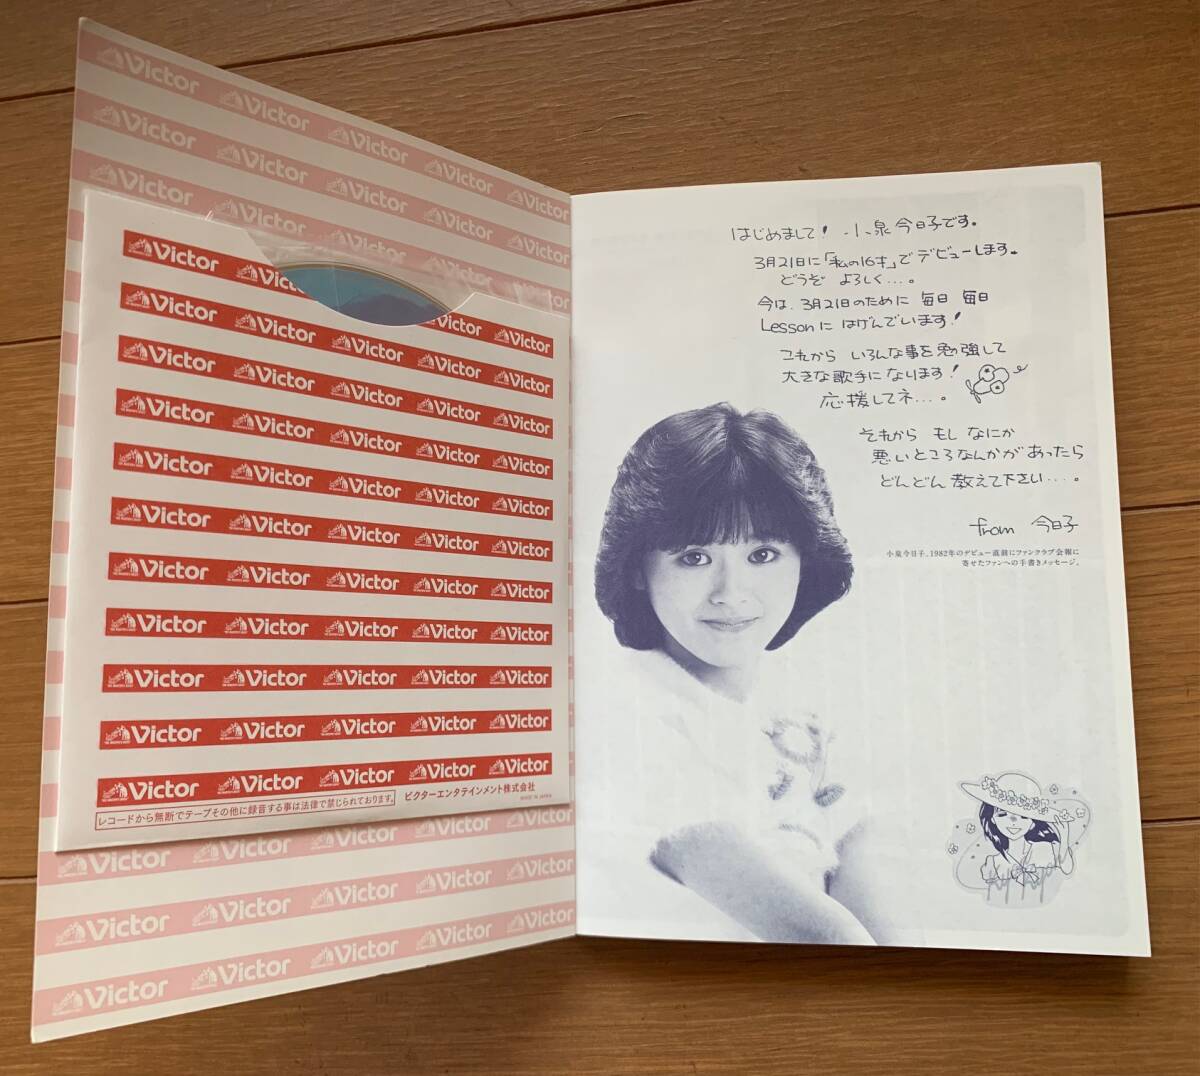 Victor Victor Victor Victor Victor
Victor Victor Victor Victor Victor
Victor Victor Victor Victor Victor
Victor Victor
Victor
Victor Victor Victor Victor
Victor Victor Victor Victor Victor
Victor Victor Victor Victor Victor
Victor Victor Victor Victor Victor
Victor Victor Victor Victor Victor
Victor Victor Victor Victor Victor
Victor Victor Victor Victor Victor
Victor Victor Victor Victor Victor
Victor Victor Victor Victor Victor
Victor Victor Victor Victor Victor
レコードから無断でテープその他に録音する事は法律で禁じられております。
ビクターエンタテインメント株式会社
MADE IN JAPAN
Victor Victor Victor Victor Victor
Victor Victor Victor Victor Victor
Victor Victor Victor Victor Victor
はじめまして! 小泉今日子です。
3月21日に「私の16才」でデビューします。
どうぞ よろしく…。
今は、3月21日のために 毎日 毎日
Lessonに はげんでいます!
これから いろんな事を勉強して
大きな歌手になります!
応援してネ…。
それから もし なにか
悪いところなんかが あったら
どんどん 教えて下さい…。
from 今日子
小泉今日子、1982年のデビュー直前にファンクラブ会報に
寄せたファンへの手書きメッセージ。
Kyon Kyon